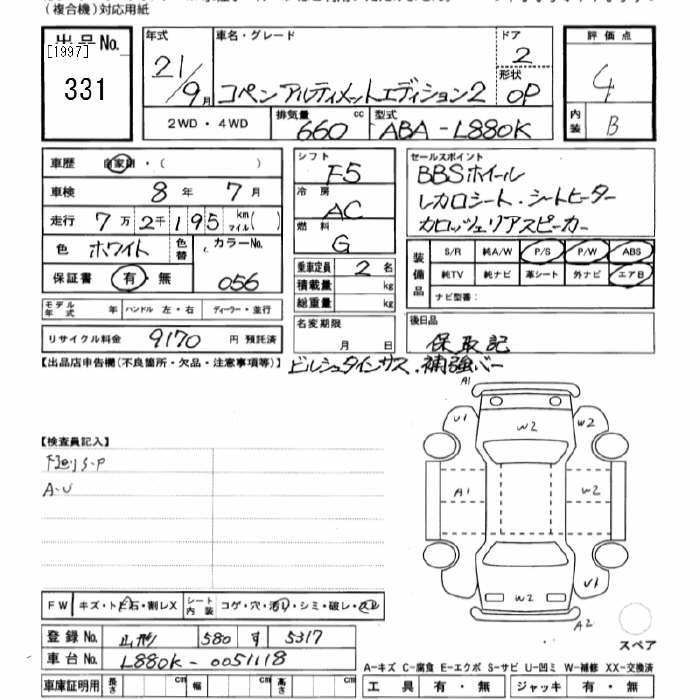 (複合機)対応用紙
出品No.
[1997]
331
年式
21/9月
車名・グレード
コペン アルティメットエディション2
ドア
2
形状
OP
2WD・4WD
排気量
660 cc
型式
ABA-L880K
評価点
4
内装
B
車歴 自家用・( )
車検 8年 7月
走行 7万2千195 km マイル( )
色 ホワイト 色替 カラーNo. 056
保証書 有・無
モデル年式 年 ハンドル 左・右 ディーラー・並行
リサイクル料金 9170 円 預託済
シフト
F5
冷房
AC
燃料
G
乗車定員 2名
積載量 kg
総重量 kg
名変期限
月 日
セールスポイント
BBSホイール
レカロシート・シートヒーター
カロッツェリアスピーカー
装備品
S/R 純A/W P/S P/W ABS
純TV 純ナビ 革シート 外ナビ エアB
ナビ型番:
後日品
保取記
【出品店申告欄(不良箇所・欠品・注意事項等)】
ビルシュタインサス・補強バー
【検査員記入】
A-U
A1
U1
W2
W2
A1
W2
W2
U1
A2
スペア
FW キズ・トビ石・割レX
シート内装 コゲ・穴・汚レ・シミ・破レ・スレ
登録No. 山形 580 す 5317
車台No. L880K-0051118
車庫証明用 長さ cm 幅 cm 高さ cm
A-キズ C-腐食 E-エクボ S-サビ U-凹ミ W-補修 XX-交換済
工具 有・無 ジャッキ 有・無